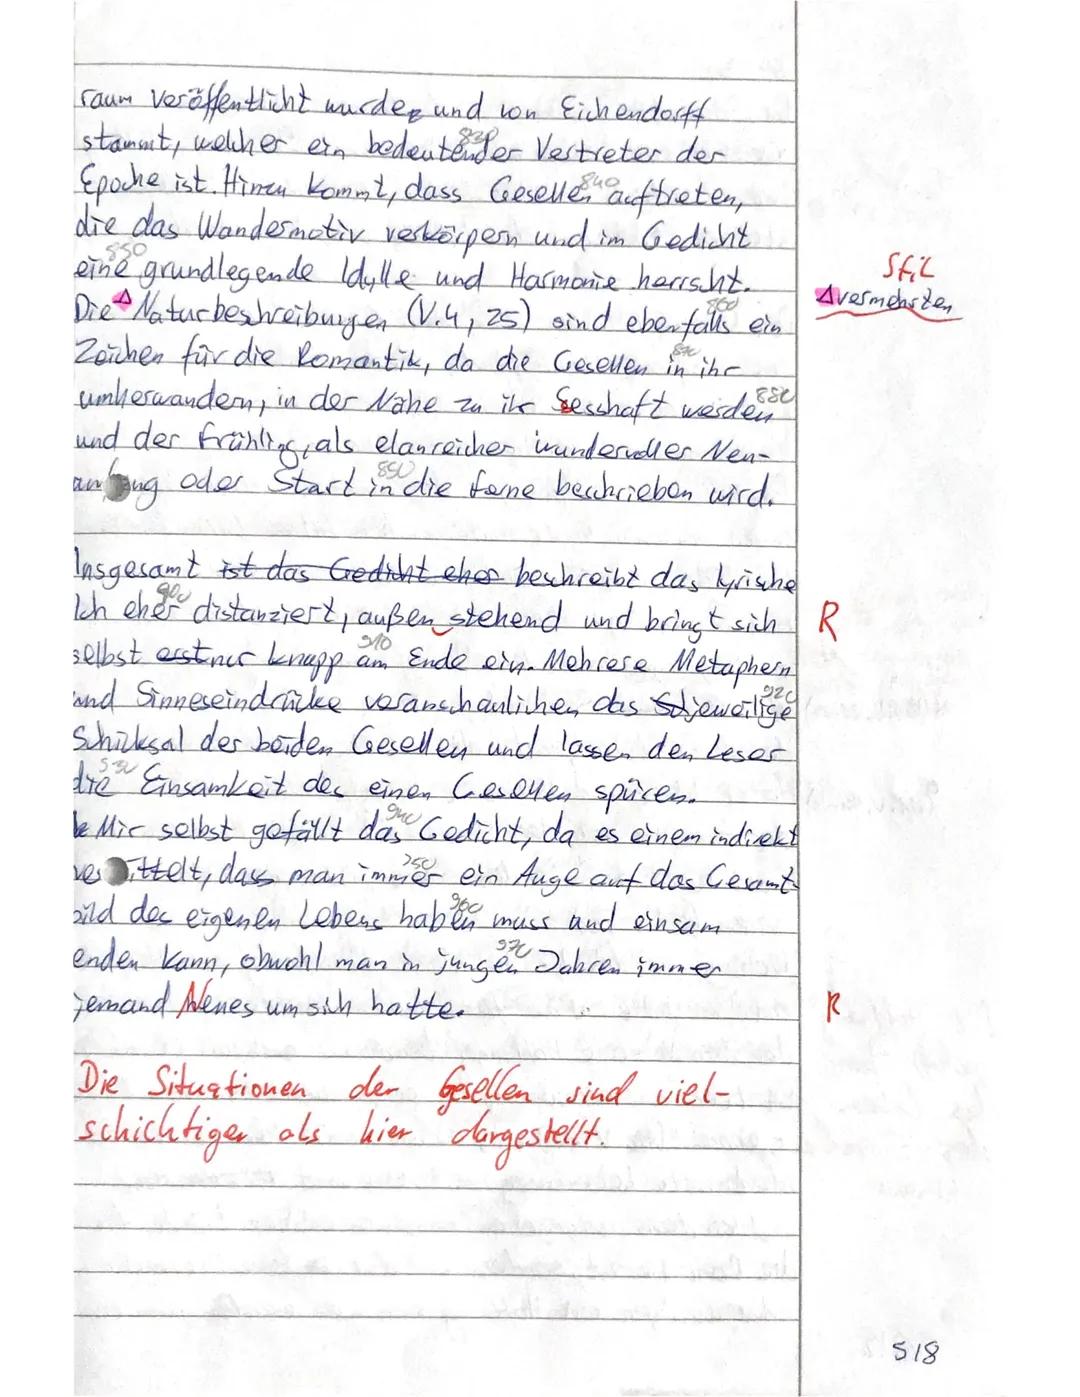 raum veröffentlicht wurde, und von Eichendorff
830
stammt, welcher ein bedeutender Vertreter der
840
Epoche ist. Hinzu kommt, dass Gesellen auftreten,
die das Wandermotiv verkörpern und im Gedicht
850
eine grundlegende Idylle und Harmonie herrscht.
Stil
Δvermehrten
860
Die Δ Naturbeschreibungen (V.4, 25) sind ebenfalls ein
870
Zeichen für die Romantik, da die Gesellen in ihr
880
umherwandern, in der Nähe zu ihr sesshaft werden
und der Frühling, als elanreicher wundervoller Neu-
890
anfang oder Start in die Ferne beschrieben wird.
Insgesamt ist das Gedicht eher beschreibt das lyrische
900
Ich eher distanziert, außen stehend und bringt sich R
910
selbst erst nur knapp am Ende ein. Mehrere Metaphern
920
und Sinneseindrücke veranschaulichen das jeweilige
Schicksal der beiden Gesellen und lassen den Leser
930
die Einsamkeit des einen Gesellen spüren.
940
Mir selbst gefällt das Gedicht, da es einem indirekt
950
vermittelt, dass man immer ein Auge auf das Gesamt-
960
bild des eigenen Lebens haben muss und einsam
970
enden kann, obwohl man in jungen Jahren immer
jemand Neues um sich hatte. R
Die Situationen der Gesellen sind viel-
schichtiger als hier dargestellt.
518